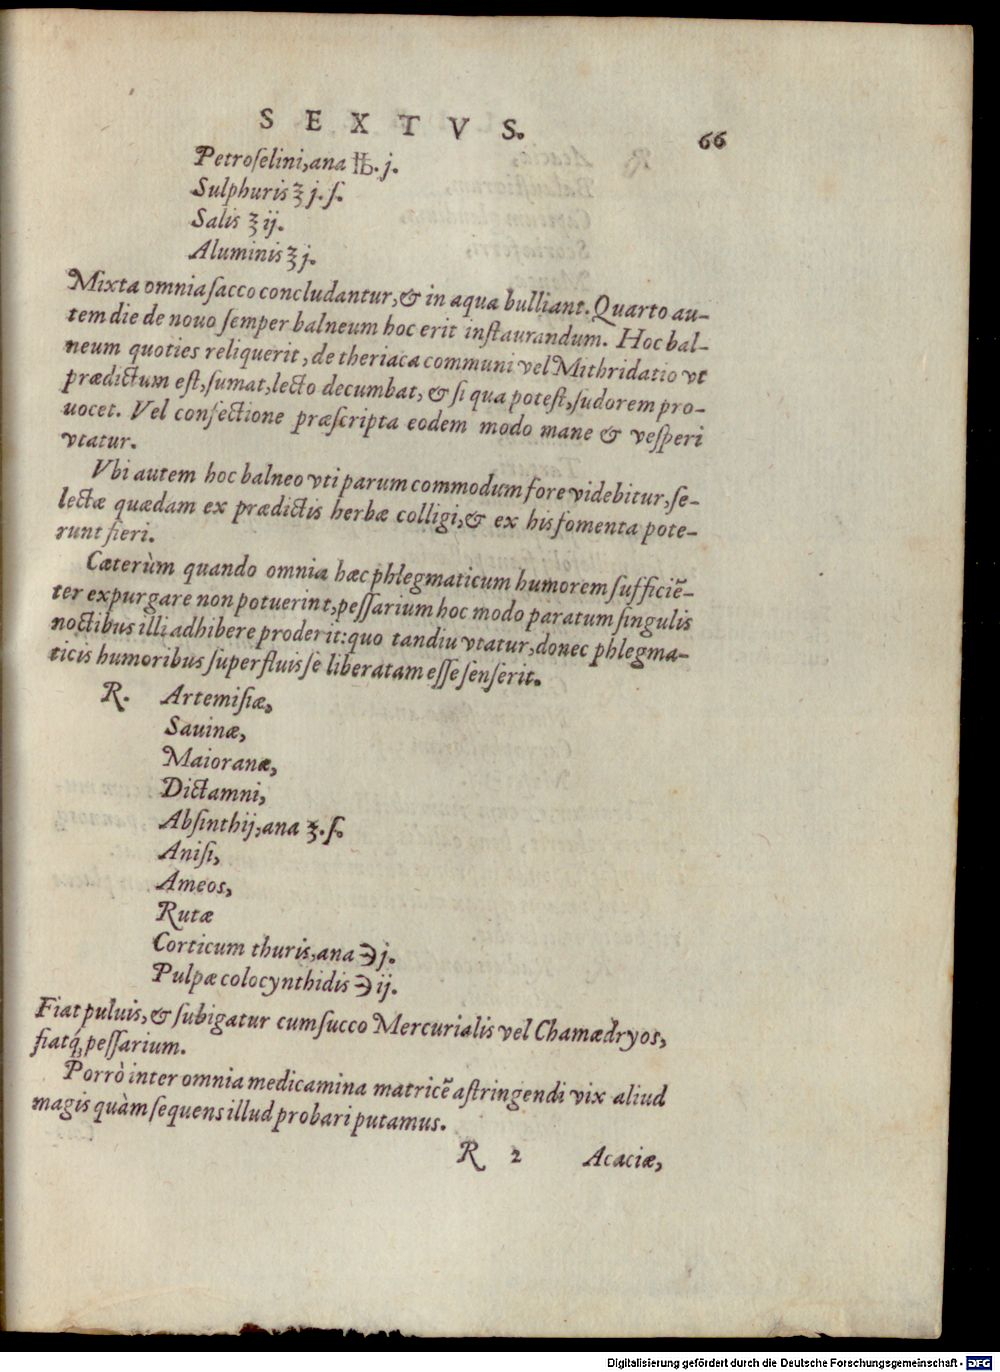 SEXTVS. 66
Petroſelini, ana ℔. j.
Sulphuris ℥ j. ſ.
Salis ℥ ij.
Aluminis ℥ j.
Mixta omnia ſacco concludantur, & in aqua bulliant. Quarto au-
tem die de nouo ſemper balneum hoc erit inſtaurandum. Hoc bal-
neum quoties reliquerit, de theriaca communi vel Mithridatio vt
prædictum eſt, ſumat, lecto decumbat, & ſi qua poteſt, ſudorem pro-
uocet. Vel confectione præſcripta eodem modo mane & veſperi
vtatur.
Vbi autem hoc balneo vti parum commodum fore videbitur, ſe-
lectæ quædam ex prædictis herbæ colligi, & ex his fomenta pote-
runt fieri.
Cæterùm quando omnia hæc phlegmaticum humorem ſufficiẽ-
ter expurgare non potuerint, peſſarium hoc modo paratum ſingulis
noctibus illi adhibere proderit: quo tandiu vtatur, donec phlegma-
ticis humoribus ſuperfluis ſe liberatam eſſe ſenſerit.
R. Artemiſiæ,
Sauinæ,
Maioranæ,
Dictamni,
Abſinthij, ana ʒ. ſ.
Aniſi,
Ameos,
Rutæ
Corticum thuris, ana ℈ j.
Pulpæ colocynthidis ℈ ij.
Fiat puluis, & ſubigatur cum ſucco Mercurialis vel Chamædryos,
fiatq́; peſſarium.
Porrò inter omnia medicamina matricẽ aſtringendi vix aliud
magis quàm ſequens illud probari putamus.
R 2 Acaciæ,
Digitalisierung gefördert durch die Deutsche Forschungsgemeinschaft - DFG